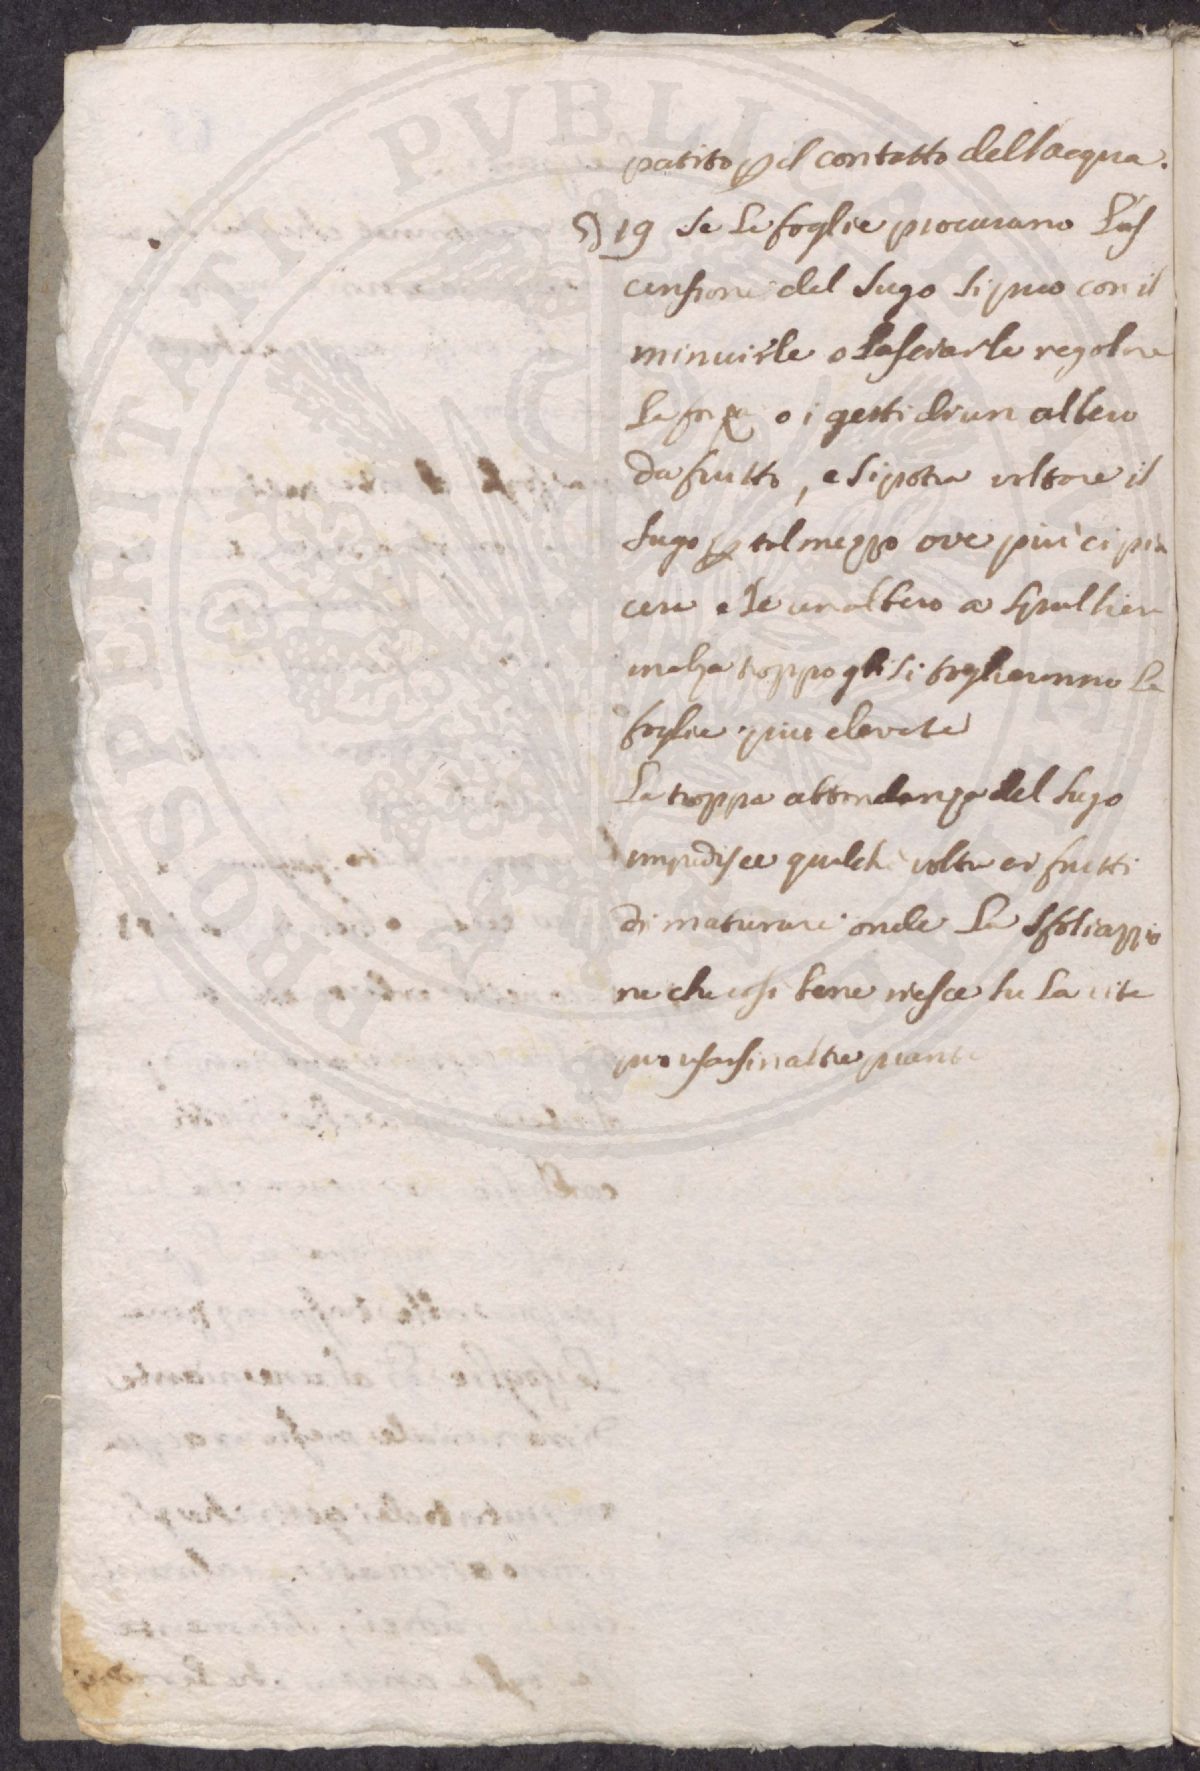 patito p il contatto dell'acqua.
§ 19 Se le foglie procurano l'as
censione del sugo si puo con il
minuirle o lasciarle regolare
la forza o i getti di un albero
da frutto, e si potra voltare il
sugo p tal mezzo ove più ci pia
cera e se un albero a spalliera
inalza troppo gli si toglieranno le
foglie piu elevate
La troppa abbondanza del sugo
impedisce qualche volta ai frutti
di maturare onde la sfoliazzio
ne che così bene riesce su la vite
puo usarsi in altre piante
PROSPERITATI PVBLICAE